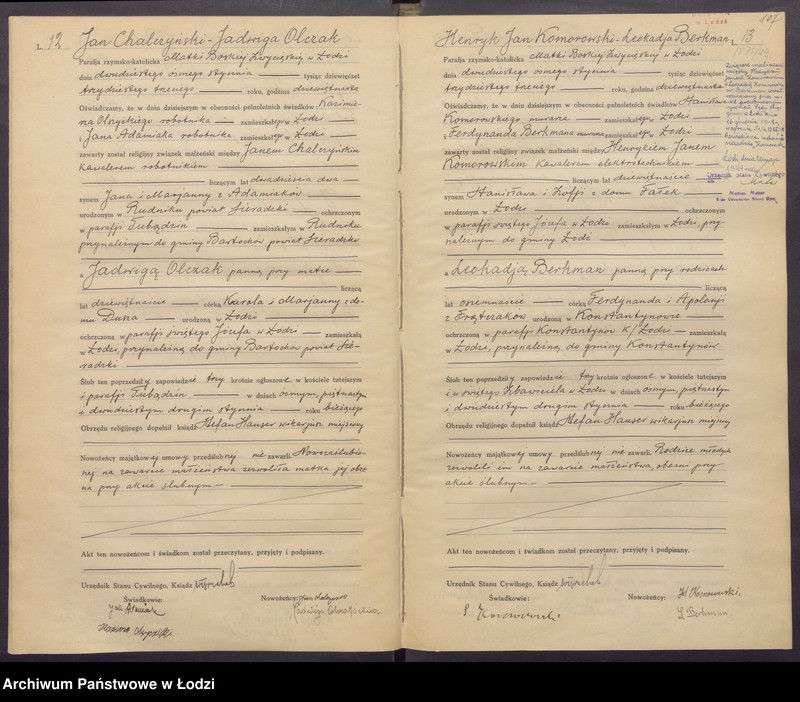 12 Jan Chalczyński - Jadwiga Olczak
Parafja rzymsko-katolicka Matki Boskiej Zwycięskiej w Łodzi
dnia dwudziestego ósmego stycznia tysiąc dziewięćset
trzydziestego trzeciego roku, godzina dziewiętnasta
Oświadczamy, że w dniu dzisiejszym w obecności pełnoletnich świadków Kazimie-
ra robotnika zamieszkałego w Łodzi
i Jana Adamiaka robotnika zamieszkałego w Łodzi
zawarty został religijny związek małżeński między Janem Chalczyńskim
kawalerem robotnikiem
liczącym lat dwadzieścia dwa
synem Jana i Marjanny z Adamiaków
urodzonym w Rudniku powiat Sieradzki ochrzczonym
w parafji Tubądzin zamieszkałym w Rudniku
przynależnym do gminy Bartochów powiat Sieradzki
a Jadwigą Olczak panną przy matce
liczącą
lat dziewiętnaście córką Karola i Marjanny z do-
mu Dusza urodzoną w Łodzi
ochrzczoną w parafji świętego Józefa w Łodzi zamieszkałą
w Łodzi, przynależną do gminy Bartochów powiat Sie-
radzki
Ślub ten poprzedziły zapowiedzie trzy krotnie ogłoszone w kościele tutejszym
i parafji Tubądzin w dniach ósmym, piętnastym
i dwudziestym drugim stycznia roku bieżącego
Obrzędu religijnego dopełnił ksiądz Stefan Hauser wikarjusz miejscowy
Nowożeńcy majątkowej umowy przedślubnej nie zawarli. Nowozaślubio-
nej na zawarcie małżeństwa zezwoliła matka jej obec-
na przy akcie ślubnym
Akt ten nowożeńcom i świadkom został przeczytany, przyjęty i podpisany.
Urzędnik Stanu Cywilnego, Ksiądz
Świadkowie: Nowożeńcy: Jan
Jan Adamiak Jadwiga
107
Henryk Jan Komorowski - Leokadja Berkman 13
Parafja rzymsko-katolicka Matki Boskiej Zwycięskiej w Łodzi
dnia dwudziestego ósmego stycznia tysiąc dziewięćset
trzydziestego trzeciego roku, godzina dziewiętnasta
Oświadczamy, że w dniu dzisiejszym w obecności pełnoletnich świadków Stanisława
Komorowskiego murarza zamieszkałego w Łodzi
i Ferdynanda Berkmana murarza zamieszkałego w Łodzi
zawarty został religijny związek małżeński między Henrykiem Janem
Komorowskim kawalerem elektrotechnikiem
liczącym lat dziewiętnaście
synem Stanisława i Zofji z domu Fałek
urodzonym w Łodzi ochrzczonym
w parafji świętego Józefa w Łodzi zamieszkałym w Łodzi, przy-
należnym do gminy Łodzi
a Leokadją Berkman panną przy rodzicach
liczącą
lat osiemnaście córką Ferdynanda i Apolonji
z Frątczaków urodzoną w Konstantynowie
ochrzczoną w parafji Konstantynów k/Łodzi zamieszkałą
w Łodzi, przynależną do gminy Konstantynów
Ślub ten poprzedziły zapowiedzie trzy krotnie ogłoszone w kościele tutejszym
i u świętego Zbawiciela w Łodzi w dniach ósmym, piętnastym
i dwudziestym drugim stycznia roku bieżącego
Obrzędu religijnego dopełnił ksiądz Stefan Hauser wikarjusz miejscowy
Nowożeńcy majątkowej umowy przedślubnej nie zawarli. Rodzice młodych
zezwolili im na zawarcie małżeństwa, obecni przy
akcie ślubnym
Akt ten nowożeńcom i świadkom został przeczytany, przyjęty i podpisany.
Urzędnik Stanu Cywilnego, Ksiądz
Świadkowie: Nowożeńcy: Komorowski
S. Komorowski L. Berkman
Związek małżeński
między Henrykiem
Janem Komorowskim
Urzędnik Stanu Cywilnego
Archiwum Państwowe w Łodzi